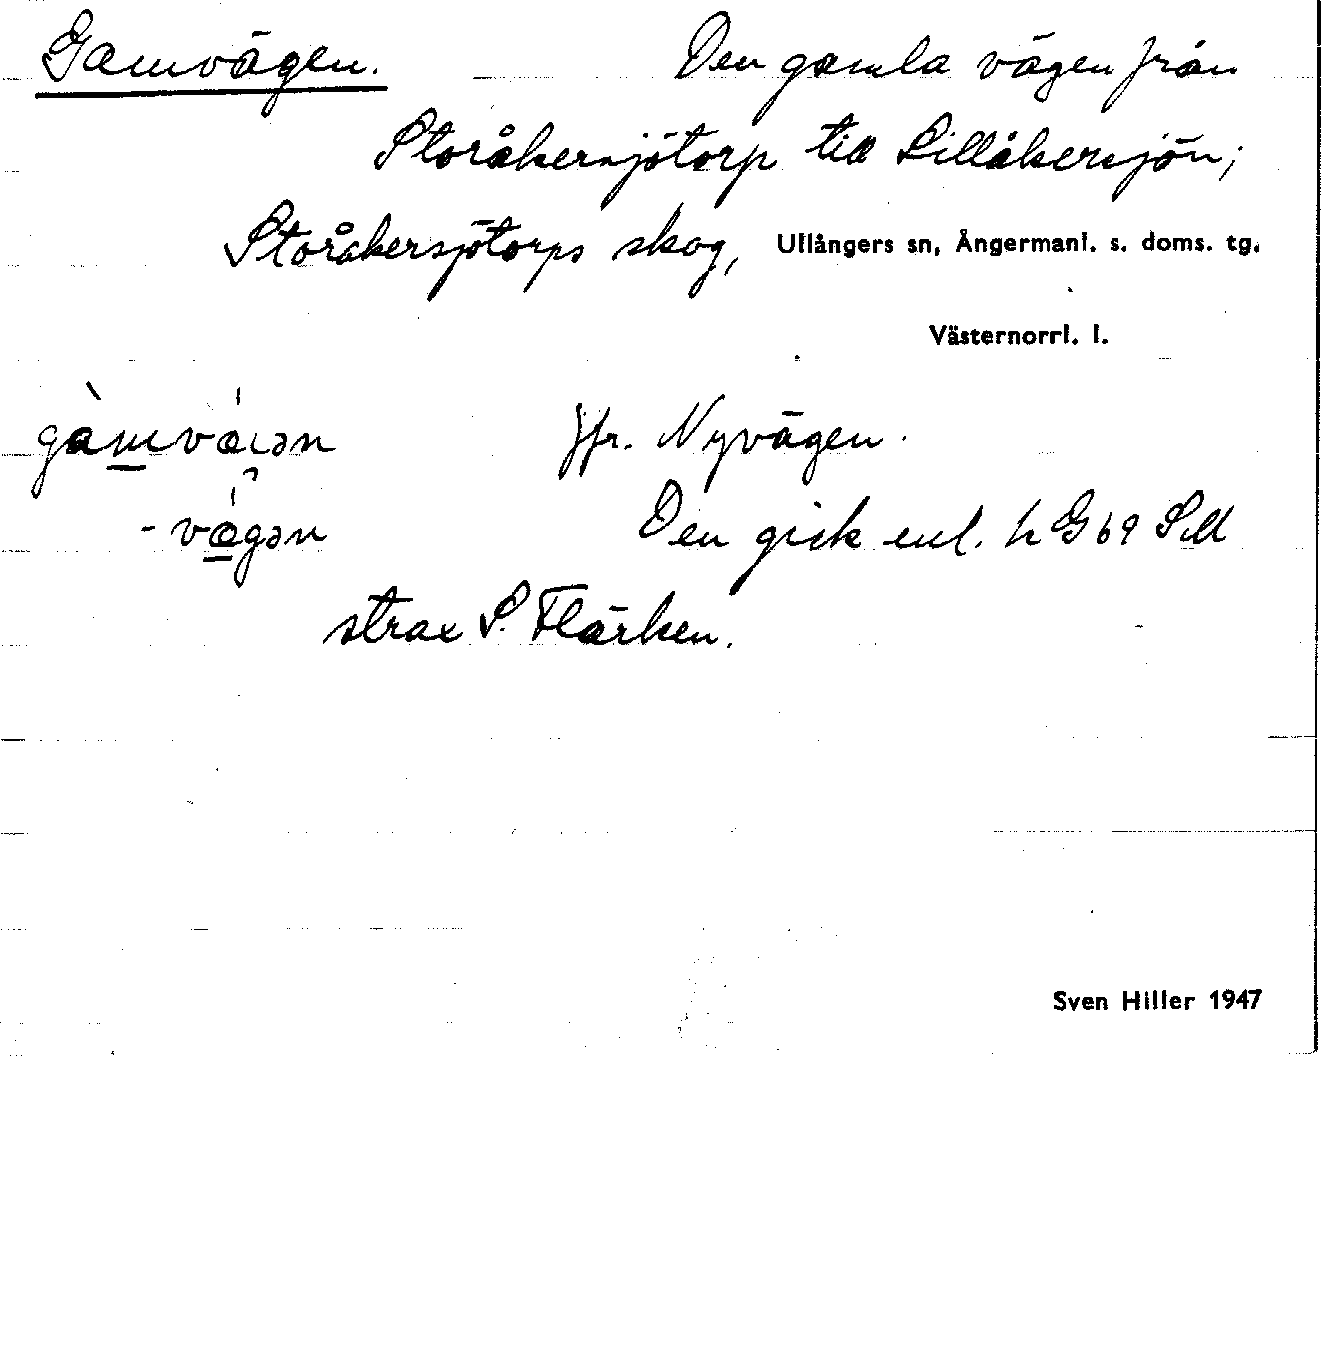 Gamvägen. Den gamla vägen från
Storåkersjötorp till Lillåkersjön;
Storåkersjötorps skog, Ullångers sn, Ångermanl. s. doms. tg.
Västernorrl. l.
gàmvǽɩən jfr. Nyvägen.
-vǽgən Den gick enl. h G 69
strax S. Flärken.
Sven Hiller 1947